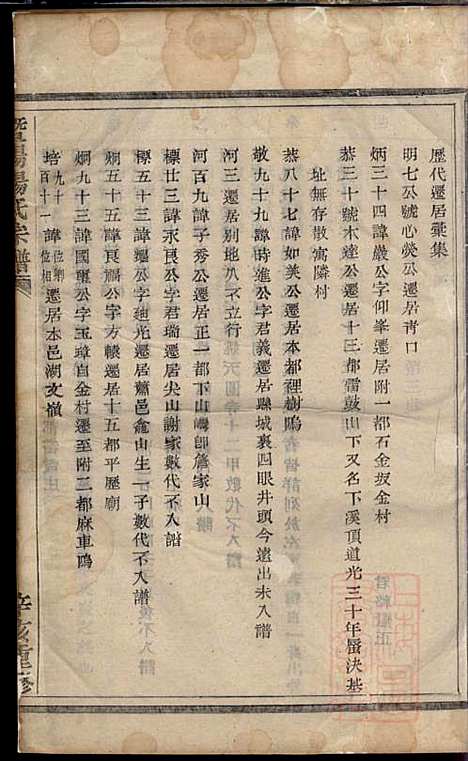 歷代遷居彙集
明七公號心熒公遷居靑口
炳三十四諱嚴公字仰峯遷居附一都石金坂金村
恭三十號木達公遷居十三都雷鼓山下又名下溪頂道光三十年蜃決基
址無存散寓隣村
恭八十七諱如美公遷居本都裡樹鴫
敬九十九諱時進公字君義遷居縣城裏四眼井頭今遠出未入譜
河三遷居別地凡不立行
河百九諱子秀公遷居正一都下山嶼卽詹家山
標廿三諱永良公字君瑞遷居尖山謝家數代不入譜
標五十三諱 公字廸光遷居蕭邑龕山生一子數代不入譜
烱五十五諱良福公字方轅遷居十五都平歷廟
烱九十三諱國璽公字玉璋自金村遷至附二都麻車鴫
培九十 百十一諱位鄉 位相遷居本邑湖文嶺
暨陽楊氏宗譜
辛亥重修